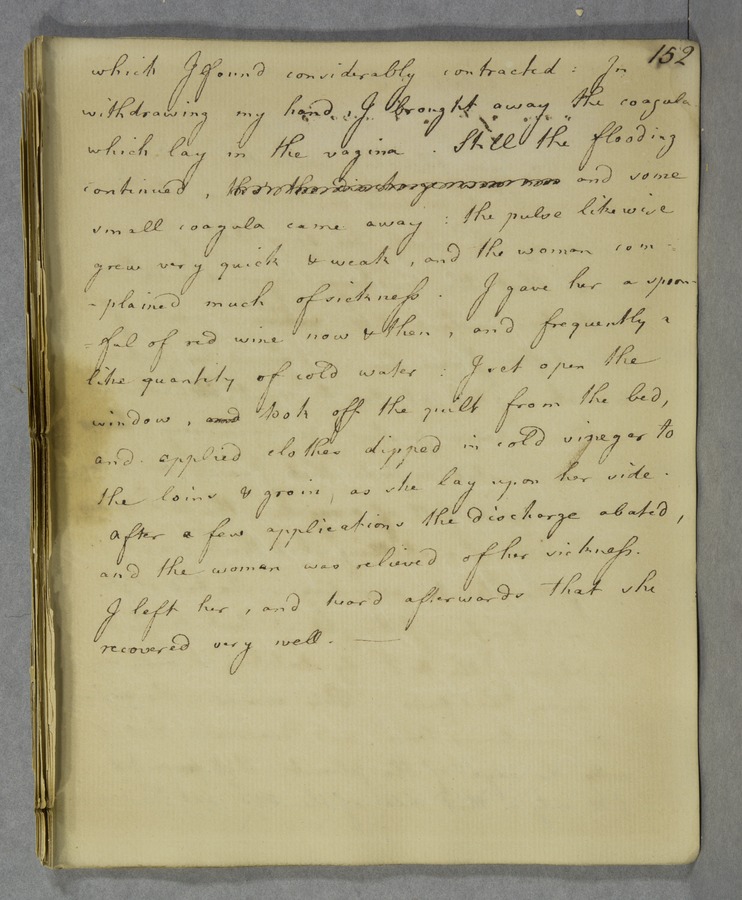 152
which I found considerably contracted : In
withdrawing my hand, I brought away the coagula
which lay in the vagina . Still the flooding
continued , and some
small coagula came away : the pulse likewise
grew very quick & weak , and the woman com-
-plained much of sickness . I gave her a spoon-
-ful of red wine now & then , and frequently a
like quantity of cold water : I set open the
window , and took off the quilt from the bed,
and applied clothes dipped in cold vinegar to
the loins & groin, as she lay upon her side .
After a few applications the discharge abated,
and the woman was relieved of her sickness.
I left her , and heard afterwards that she
recovered very well . —